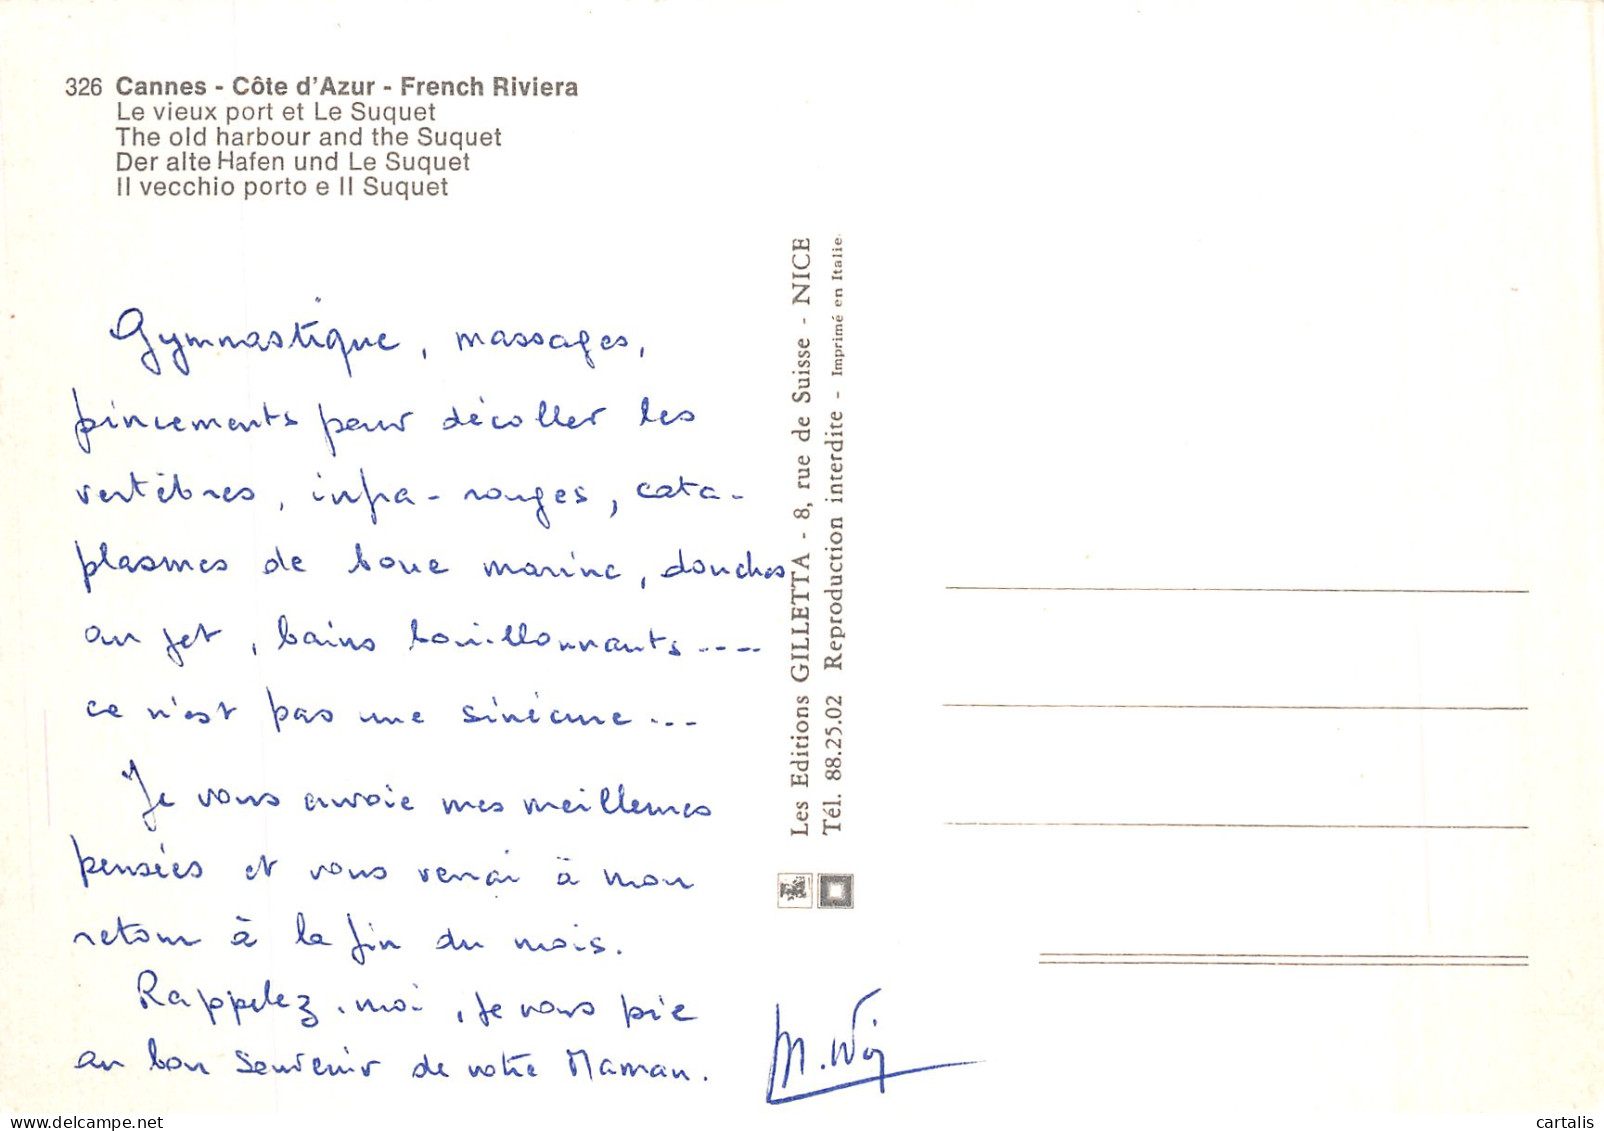 326 Cannes - Côte d'Azur - French Riviera
Le vieux port et Le Suquet
The old harbour and the Suquet
Der alte Hafen und Le Suquet
Il vecchio porto e Il Suquet
Gymnastique, massages,
pincements pour décoller les
vertèbres, infra-rouges, cata-
plasmes de boue marine, douches
au jet, bains bouillonnants....
ce n'est pas une sinécure...
Je vous envoie mes meilleures
pensées et vous verrai à mon
retour à la fin du mois.
Rappelez-moi, je vous prie
au bon souvenir de votre Maman.
Les Editions GILLETTA - 8, rue de Suisse - NICE
Tél. 88.25.02 Reproduction interdite - Imprimé en Italie
cartalis